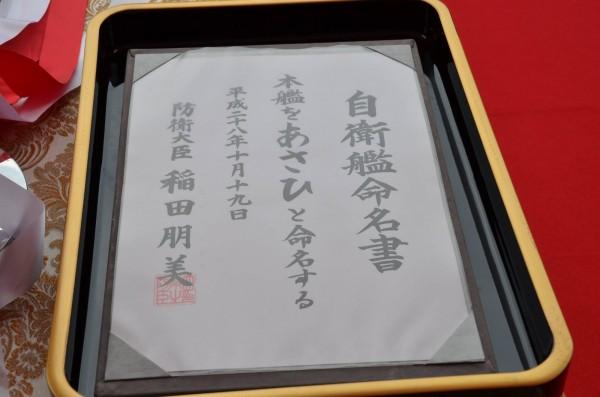 自衛艦命名書
本艦をあさひと命名する
平成二十八年十月十九日
防衛大臣 稲田朋美